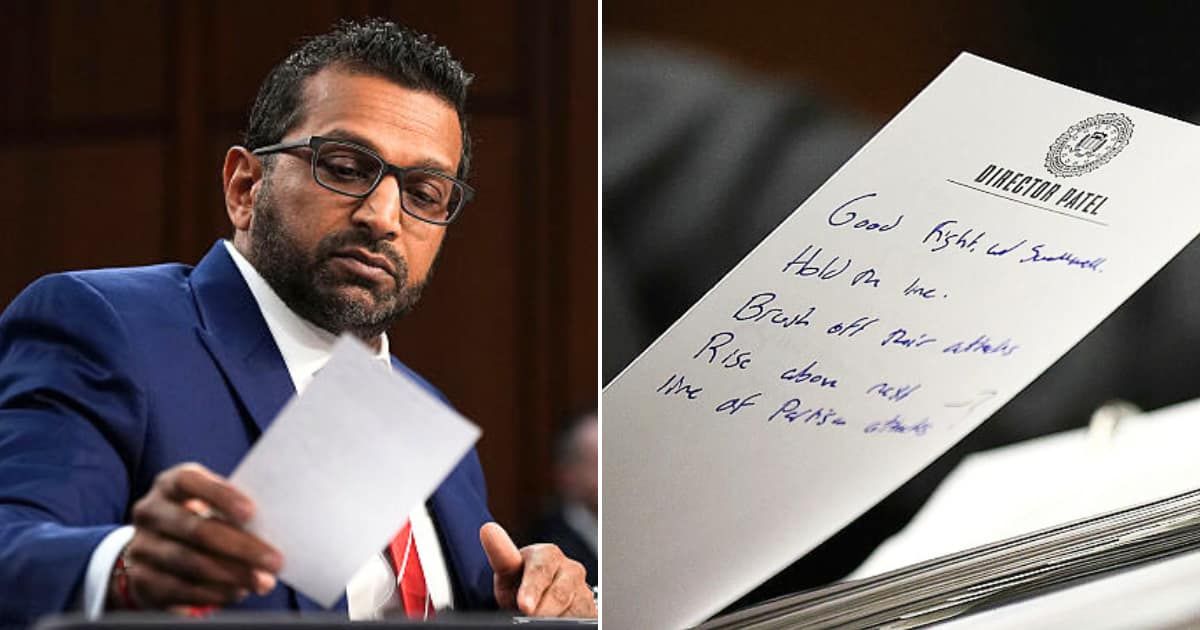 DIRECTOR PATEL
Good Fight. w/ Swalwell.
Hold the line.
Brush off their attacks
Rise above next
line of Partisan attacks